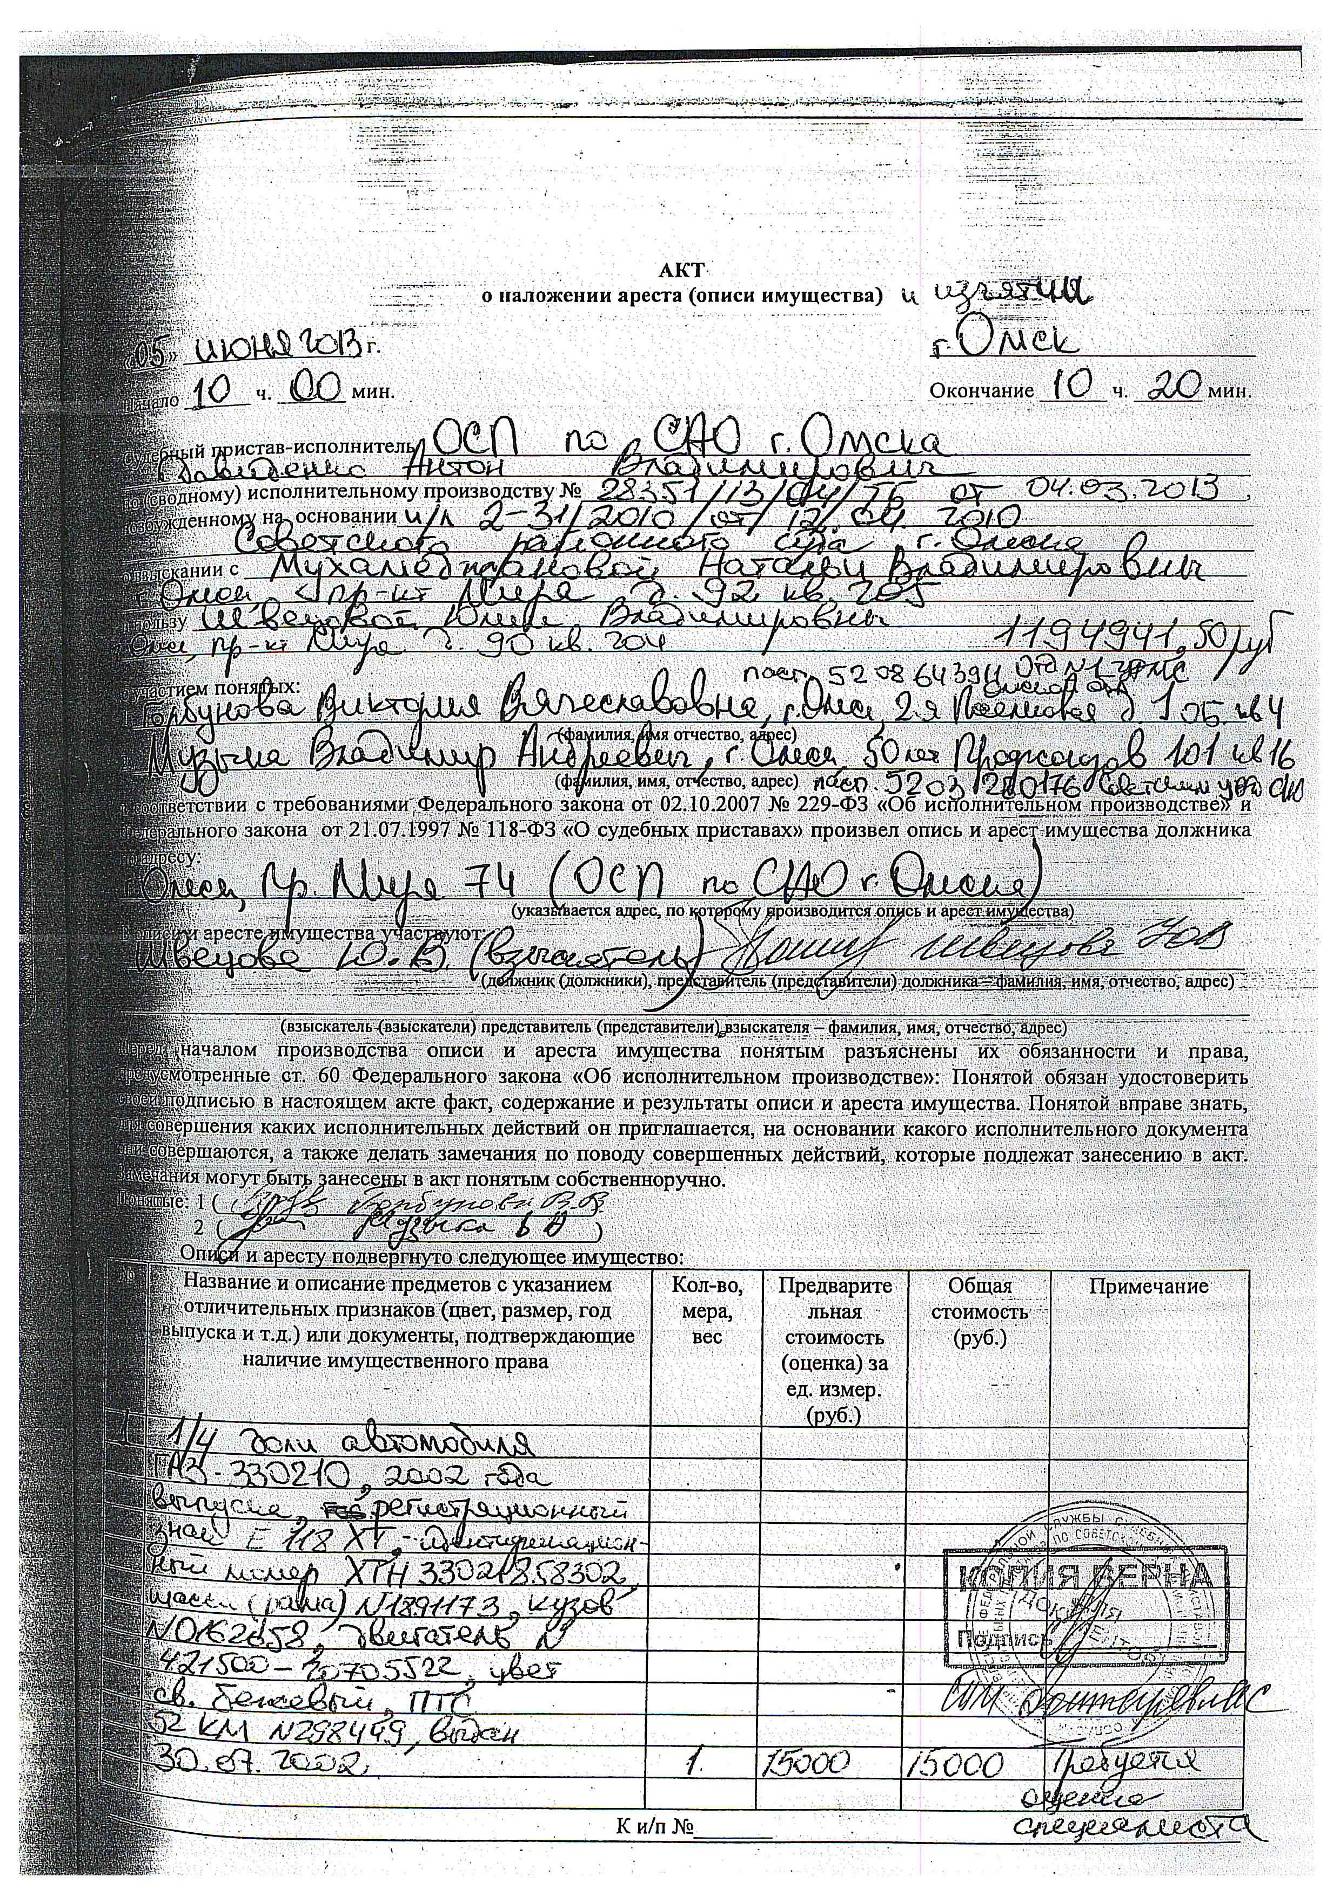 АКТ
о наложении ареста (описи имущества) и изъятии
05» июня 2013 г. г. Омск
Начало 10 ч. 00 мин. Окончание 10 ч. 20 мин.
судебный пристав-исполнитель ОСП по САО г. Омска
Антон Владимирович
по (сводному) исполнительному производству № 28351/13/04/55 от 04.03.2013
возбужденному на основании и/л 2-31/2010 от 12. 2010
Советского районного суда г. Омска
о взыскании с Мухамеджановой Натальи Владимировны
г. Омск, пр-кт Мира д. 92 кв. 205
пользу Швецовой Юлии Владимировны
Омск, пр-кт Мира д. 90 кв. 204 1194941,50 руб
пасп. 5208 643911 отд №1
участием понятых:
1 Горбунова Виктория Вячеславовна, г. Омск, 2-я Поселковая д. кв 4
(фамилия, имя отчество, адрес)
Музыка Владимир Андреевич, г. Омск, 50 лет Профсоюзов 101 кв 16
(фамилия, имя, отчество, адрес) пасп. 5203 280176 Советским
соответствии с требованиями Федерального закона от 02.10.2007 № 229-ФЗ «Об исполнительном производстве» и
Федерального закона от 21.07.1997 № 118-ФЗ «О судебных приставах» произвел опись и арест имущества должника
адресу:
г. Омск, пр. Мира 74 (ОСП по САО г. Омска)
(указывается адрес, по которому производится опись и арест имущества)
описи и аресте имущества участвуют:
Швецова Ю.В. (взыскатель) Швецова Ю.В
(должник (должники), представитель (представители) должника – фамилия, имя, отчество, адрес)
(взыскатель (взыскатели) представитель (представители) взыскателя – фамилия, имя, отчество, адрес)
Перед началом производства описи и ареста имущества понятым разъяснены их обязанности и права,
предусмотренные ст. 60 Федерального закона «Об исполнительном производстве»: Понятой обязан удостоверить
своей подписью в настоящем акте факт, содержание и результаты описи и ареста имущества. Понятой вправе знать,
для совершения каких исполнительных действий он приглашается, на основании какого исполнительного документа
они совершаются, а также делать замечания по поводу совершенных действий, которые подлежат занесению в акт.
Замечания могут быть занесены в акт понятым собственноручно.
Понятые: 1 ( Горбунова В.В.
2 ( Музыка В А )
Описи и аресту подвергнуто следующее имущество:
Название и описание предметов с указанием отличительных признаков (цвет, размер, год выпуска и т.д.) или документы, подтверждающие наличие имущественного права
Кол-во, мера, вес
Предварительная стоимость (оценка) за ед. измер. (руб.)
Общая стоимость (руб.)
Примечание
1 1/4 доли автомобиля
ГАЗ-330210, 2002 года
выпуска, регистрационный
знак Е 118 ХТ, идентификацион-
ный номер ХТН 330210 858302,
шасси (рама) N1891173, кузов
N0162658, двигатель N
421500-20705522, цвет
св. бежевый, ПТС
52 КМ N298449, выдан
30.07.2002. 1. 15000 15000 Требуется
оценка
специалиста
КОПИЯ ВЕРНА
Подпись
К и/п №